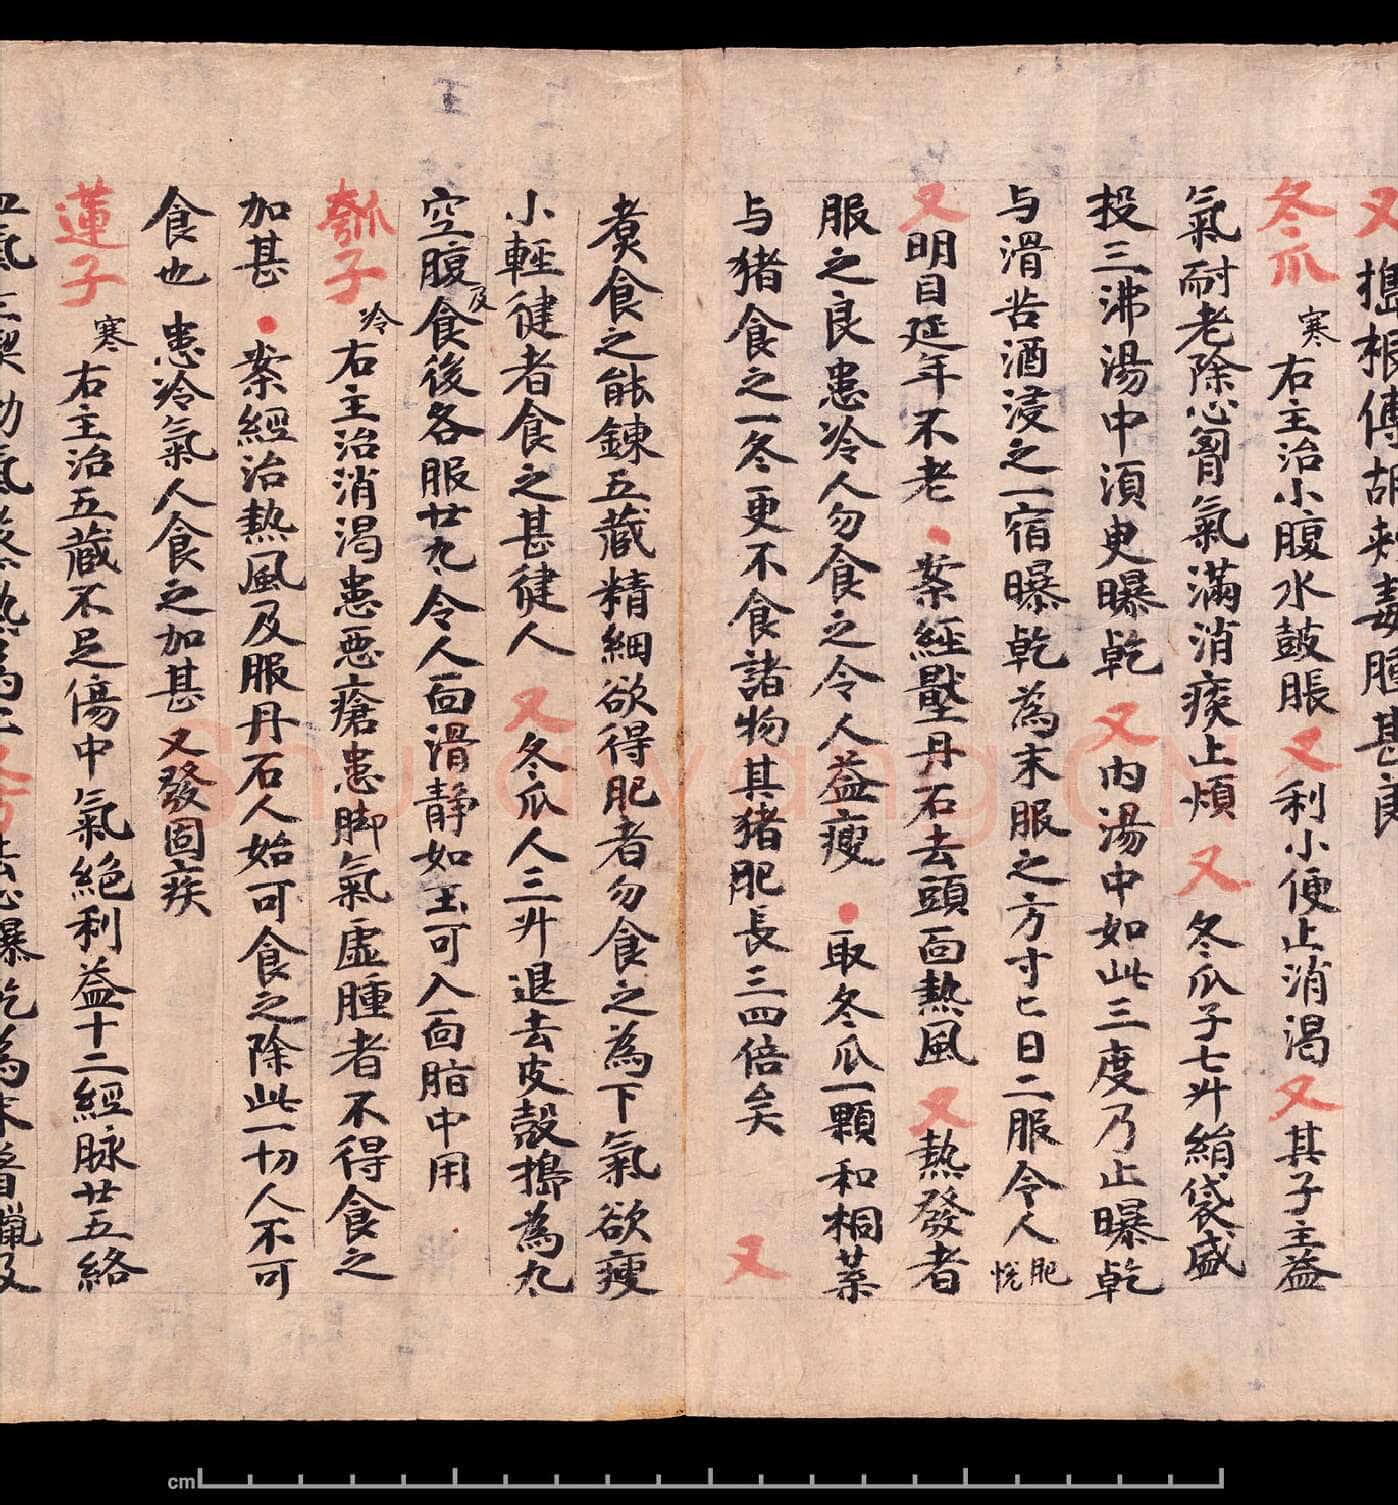 又擣根傅胡刾毒腫甚良
冬爪寒右主治小腹水鼓脹又利小便止消渴又其子主益
氣耐老除心胷氣滿消痰止煩又冬爪子七升絹袋盛
投三沸湯中湏臾曝乾又內湯中如此三度乃止曝乾
与滑苦酒浸之一宿曝乾為末服之方寸匕日二服令人肥悅
又明目延年不老案經壓丹石去頭面熱風又熱發者
服之良患冷人勿食之令人益瘦取冬瓜一顆和桐葉
与猪食之一冬更不食諸物其猪肥長三四倍矣又
煮食之能鍊五藏精細欲得肥者勿食之為下氣欲瘦
小輕健者食之甚健人又冬瓜人三升退去皮殼搗為丸
空腹及食後各服廿丸令人面滑静如玉可入面脂中用
瓠子冷右主治消渴患惡瘡患脚氣虛腫者不得食之
加甚案經治熱風及服丹石人始可食之除此一切人不可
食也患冷氣人食之加甚又發固疾
蓮子寒右主治五藏不足傷中氣絕利益十二經脉廿五絡